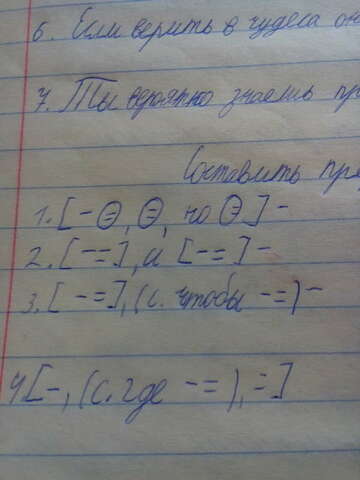 6. Если верить в чудеса он
7. Ты вероятно знаешь пр
Составить пре
1. [-Θ, Θ, но Θ] -
2. [-=], и [-=] -
3. [-=], (с. чтобы -=) -
4 [-, (с. где -=), =]